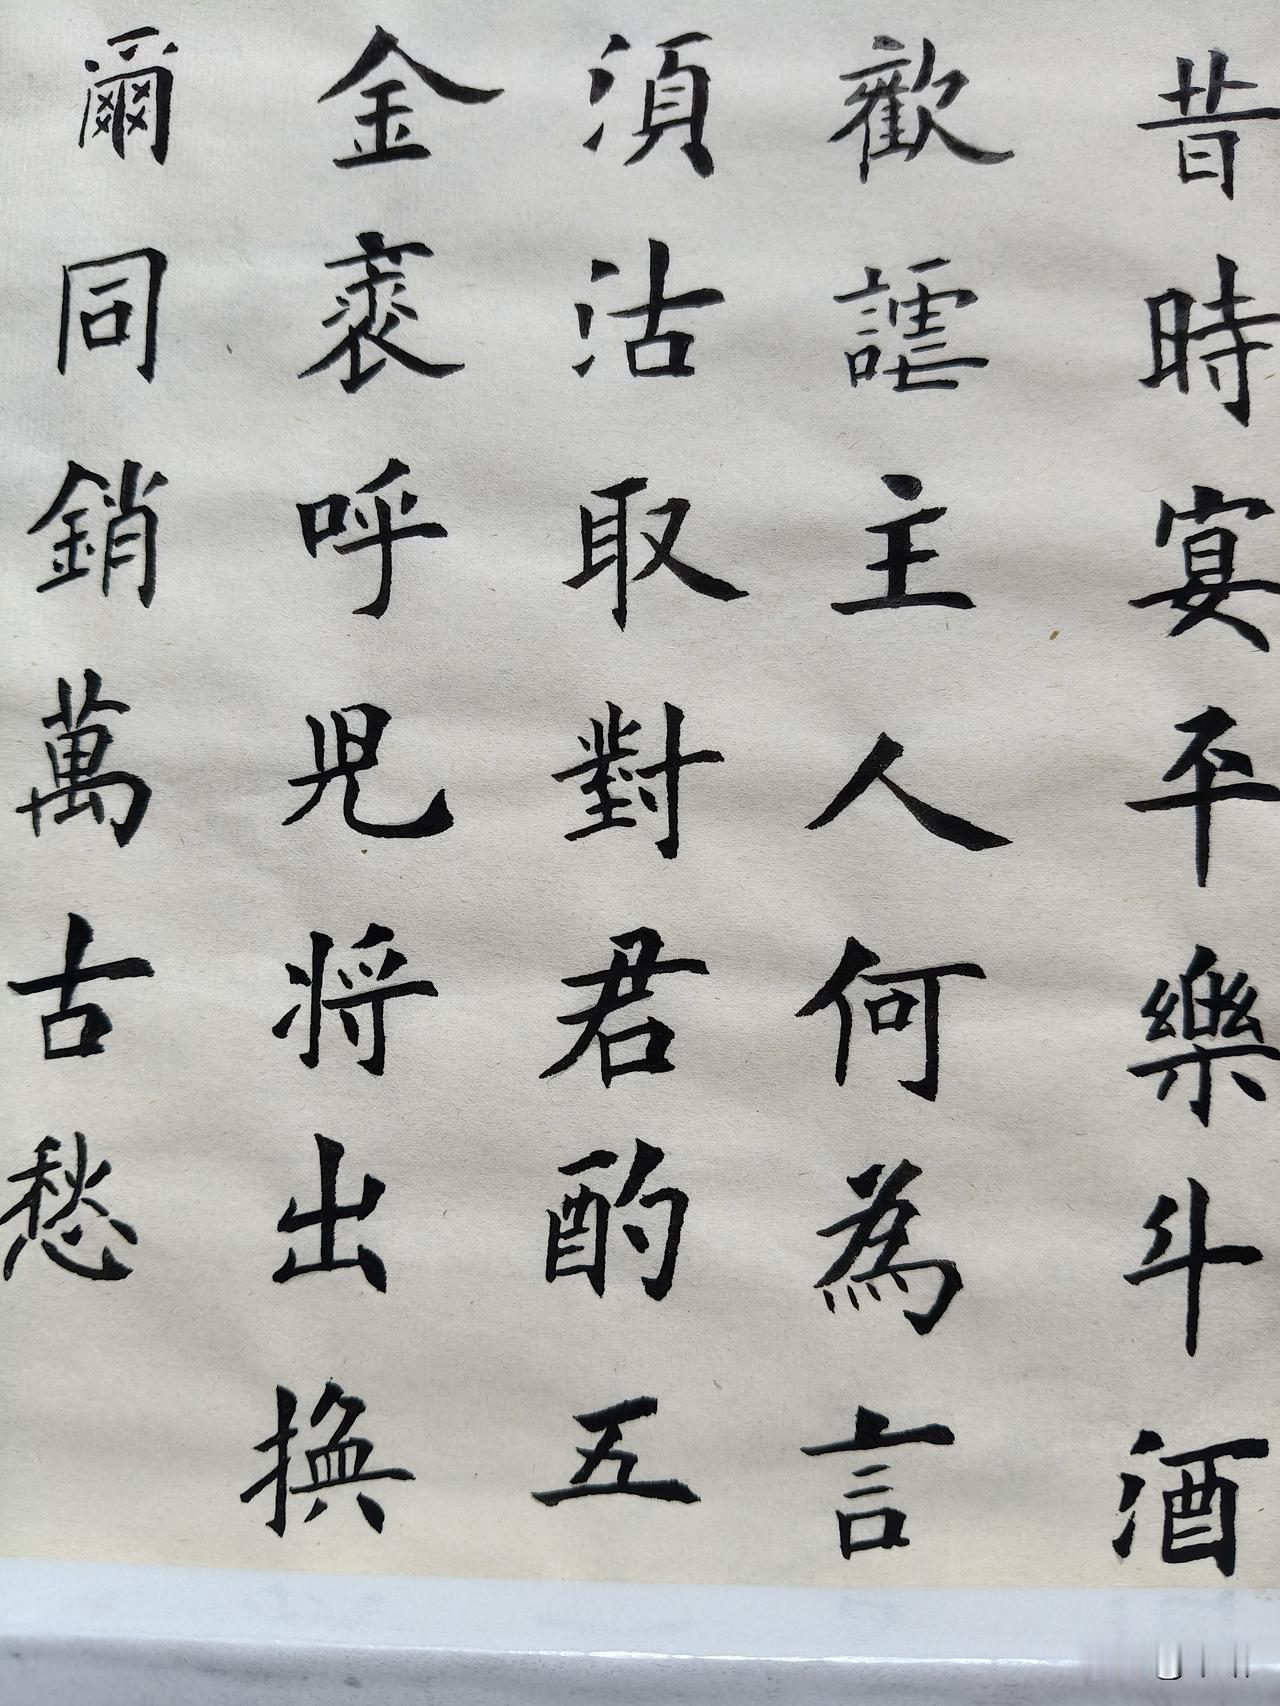 昔時宴平樂斗酒
歡謔主人何為言
須沽取對君酌五
金裘呼兒將出換
爾同銷萬古愁